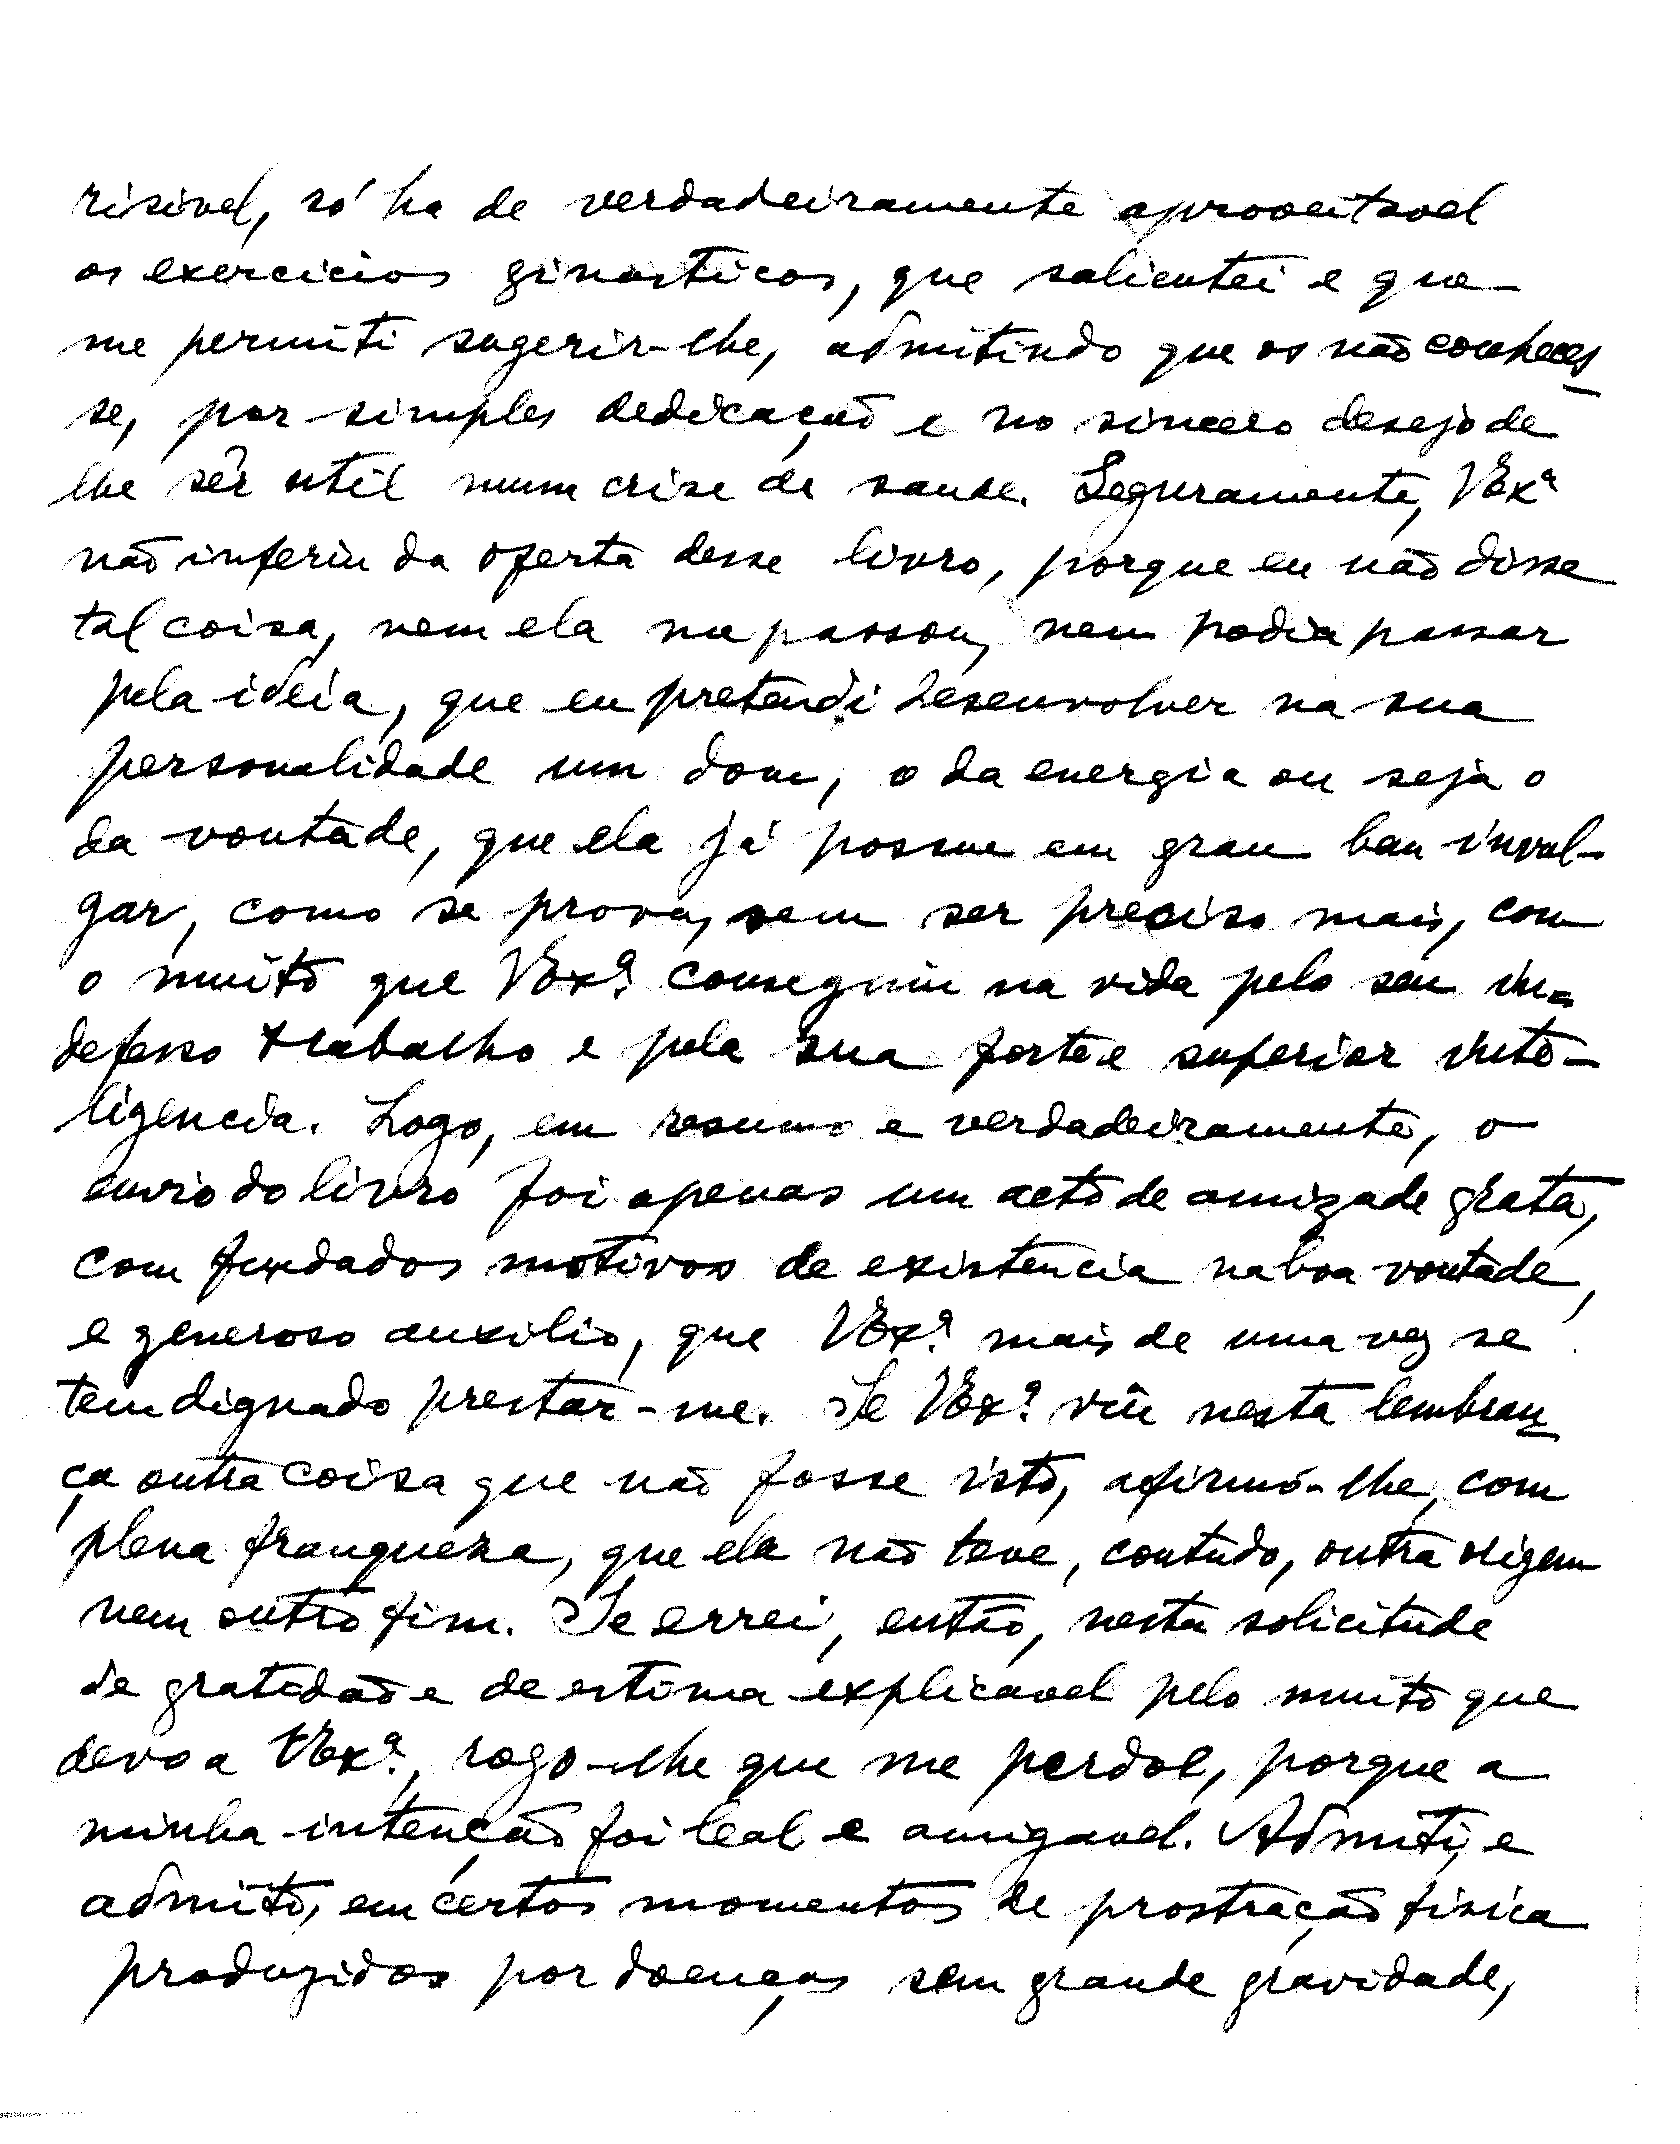 risivel, só ha de verdadeiramente aproveitavel
os exercicios ginasticos, que salientei e que
me permiti sugerir-lhe, admitindo que os não conheces
se, por simples dedicação e no sincero desejo de
lhe sêr util num crise de saude. Seguramente, VExª
não inferiu da oferta desse livro, porque eu não disse
tal coisa, nem ela me passou, nem podia passar
pela ideia, que eu pretendi desenvolver na sua
personalidade um dom, o da energia ou seja o
da vontade, que ela já possue em grau bem invul-
gar, como se prova, sem ser preciso mais, com
o muito que VExª. conseguiu na vida pelo seu in-
defesso trabalho e pela sua forte e superior inte-
ligencia. Logo, em resumo e verdadeiramente, o
envio do livro foi apenas um acto de amizade grata,
com fundados motivos de existencia na boa vontade,
e generoso auxilio, que VExª. mais de uma vez se
tem dignado prestar-me. Se VExª. viu nesta lembran
ça outra coisa que não fosse isto, afirmo-lhe, com
plena franqueza, que ela não teve, contudo, outra origem
nem outro fim. Se errei, então, nesta solicitude
de gratidão e de estima explicavel pelo muito que
devo a VExª., rogo-lhe que me perdoe, porque a
minha intenção foi leal e amigavel. Admiti, e
admito, em certos momentos de prostração fisica
produzidos por doenças sem grande gravidade,